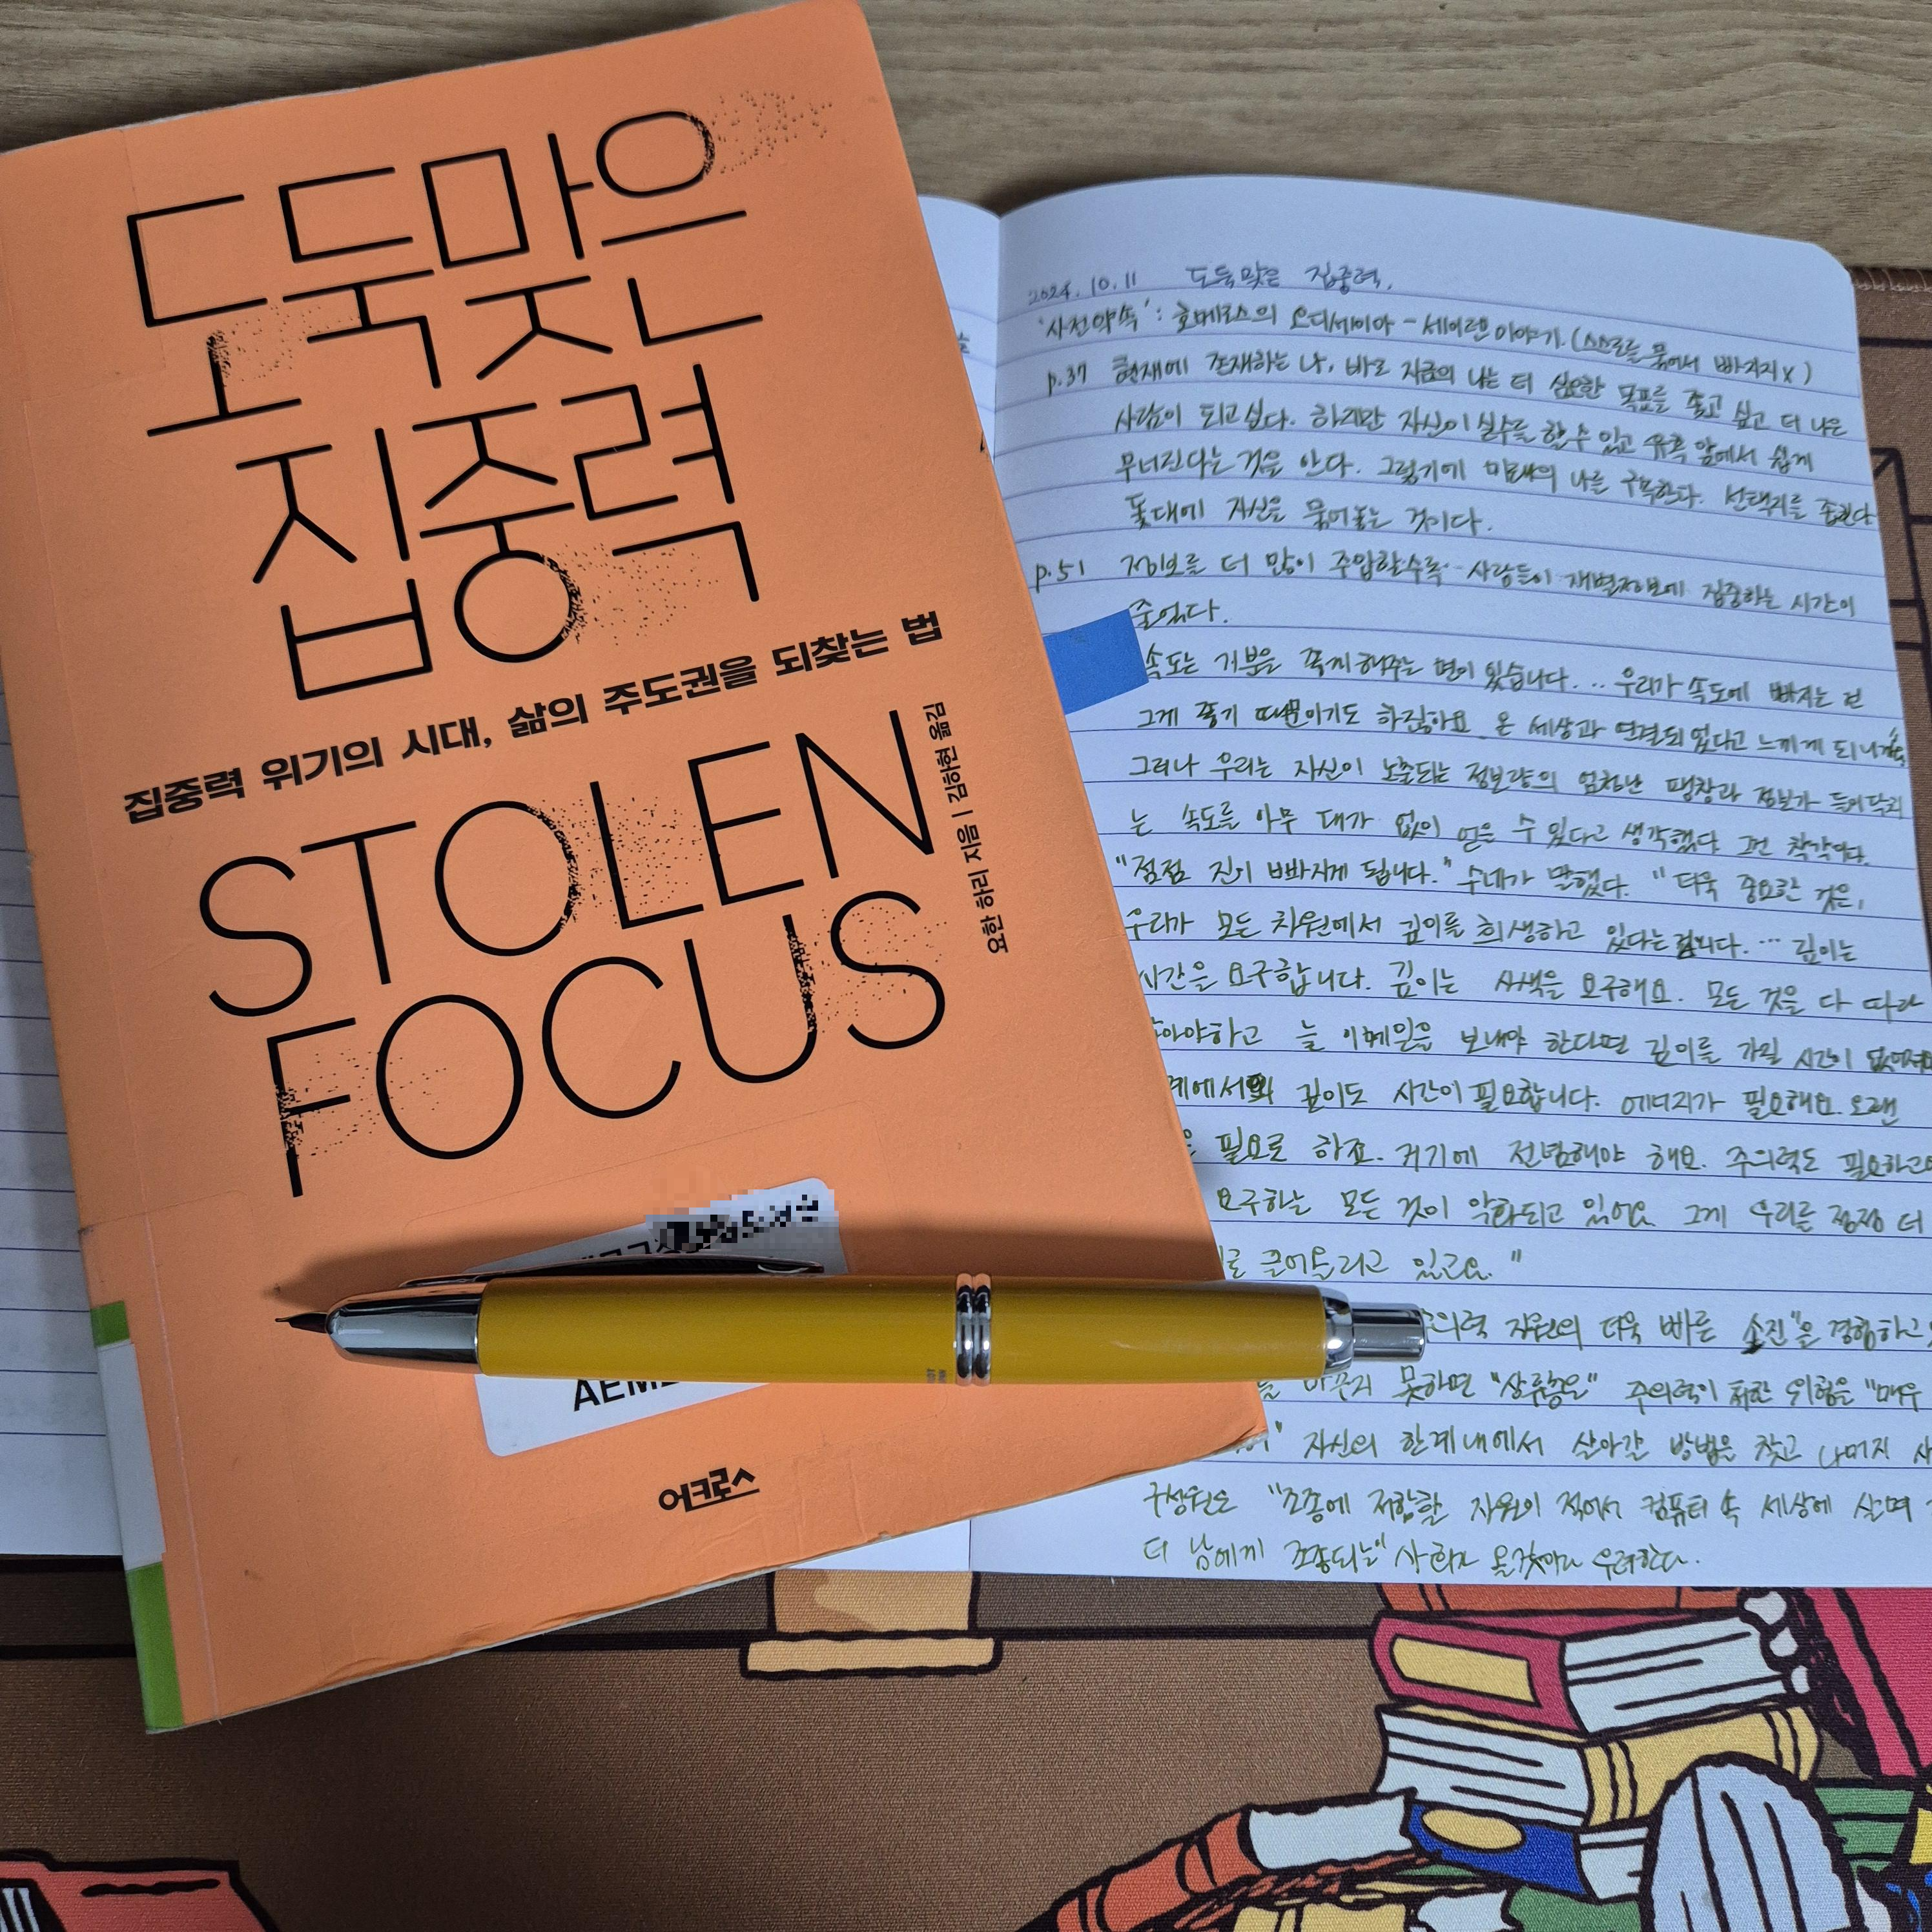 도둑맞은
집중력
집중력 위기의 시대, 삶의 주도권을 되찾는 법
STOLEN
FOCUS
요한 하리 지음 | 김하현 옮김
어크로스
2024. 10. 11 도둑맞은 집중력.
'사전약속' : 호메로스의 오디세이아 - 세이렌 이야기. (스스로를 묶어서 빠지지 x)
p.37 현재에 존재하는 나, 바로 지금의 나는 더 심오한 목표를 좇고 싶고 더 나은
사람이 되고 싶다. 하지만 자신이 실수를 할 수 있고 유혹 앞에서 쉽게
무너진다는 것을 안다. 그렇기에 미래의 나를 구속한다. 선택지를 줄인다
돛대에 자신을 묶어놓는 것이다.
p.51 정보를 더 많이 주입할수록 사람들이 개별정보에 집중하는 시간이
줄었다.
속도는 기분을 째지게 해주는 면이 있습니다. .. 우리가 속도에 빠지는 건
그게 좋기 때문이기도 하잖아요. 온 세상과 연결되었다고 느끼게 되니까요
그러나 우리는 자신이 노출되는 정보량의 엄청난 팽창과 정보가 들이닥치
는 속도를 아무 대가 없이 얻을 수 있다고 생각했다. 그건 착각이다.
"점점 진이 빠지게 됩니다." 수네가 말했다. "더욱 중요한 것은,
우리가 모든 차원에서 깊이를 희생하고 있다는 겁니다. ... 깊이는
시간을 요구합니다. 깊이는 사색을 요구해요. 모든 것을 다 따라
아야하고 늘 이메일을 보내야 한다면 깊이를 가질 시간이 없어요
계에서의 깊이도 시간이 필요합니다. 에너지가 필요해요. 오랜
필요로 하죠. 거기에 전념해야 해요. 주의력도 필요하고요
요구하는 모든 것이 악화되고 있어요. 그게 우리를 점점 더
로 끌어올리고 있고요."
주의력 자원의 더욱 빠른 소진"을 경험하고
바꾸지 못하면 "상류층은" 주의력이 처한 위험을 "매우
자신의 한계 내에서 살아갈 방법을 찾고 나머지 사
구성원은 "조종에 저항할 자원이 적어서 컴퓨터 속 세상에 살며
더 남에게 조종되는" 사회가 올것이라 우려한다.